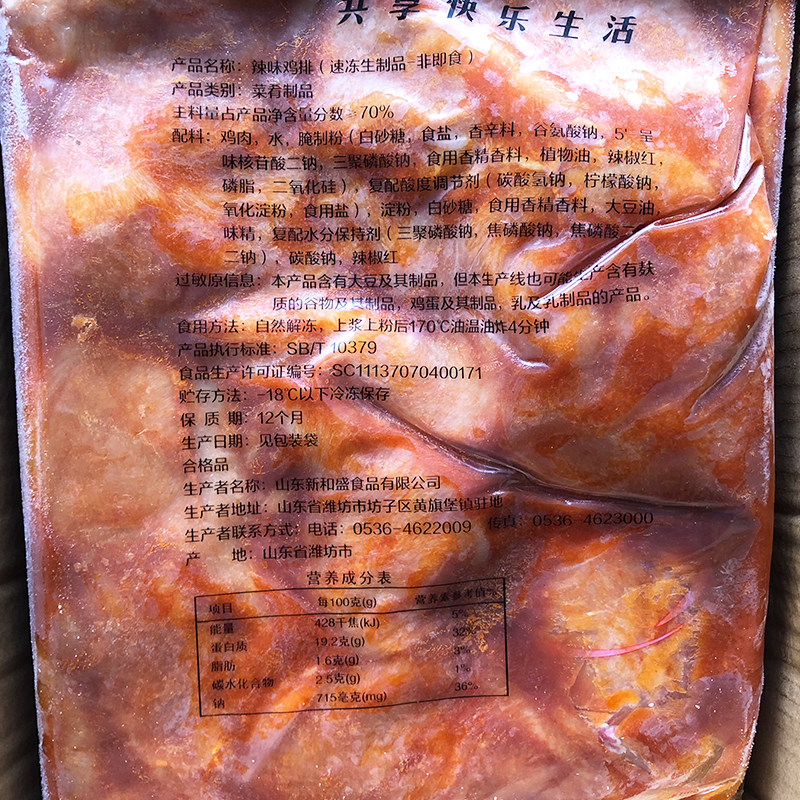 共享快乐生活
产品名称：辣味鸡排（速冻生制品-非即食）
产品类别：菜肴制品
主料量占产品净含量分数 ≥70%
配料：鸡肉，水，腌制粉（白砂糖，食盐，香辛料，谷氨酸钠，5'呈
味核苷酸二钠，三聚磷酸钠，食用香精香料，植物油，辣椒红，
磷脂，二氧化硅），复配酸度调节剂（碳酸氢钠，柠檬酸钠，
氧化淀粉，食用盐），淀粉，白砂糖，食用香精香料，大豆油，
味精，复配水分保持剂（三聚磷酸钠，焦磷酸钠，焦磷酸二
二钠），碳酸钠，辣椒红
过敏原信息：本产品含有大豆及其制品，但本生产线也可能生产含有麸
质的谷物及其制品，鸡蛋及其制品，乳及乳制品的产品。
食用方法：自然解冻，上浆上粉后170℃油温油炸4分钟
产品执行标准：SB/T 10379
食品生产许可证编号：SC11137070400171
贮存方法：-18℃以下冷冻保存
保 质 期：12个月
生产日期：见包装袋
合格品
生产者名称：山东新和盛食品有限公司
生产者地址：山东省潍坊市坊子区黄旗堡镇驻地
生产者联系方式：电话：0536-4622009 传真：0536-4623000
产 地：山东省潍坊市
营养成分表
项目 每100克(g) 营养素参考值%
能量 428千焦(kJ) 5%
蛋白质 19.2克(g) 32%
脂肪 1.6克(g) 3%
碳水化合物 2.5克(g) 1%
钠 715毫克(mg) 36%